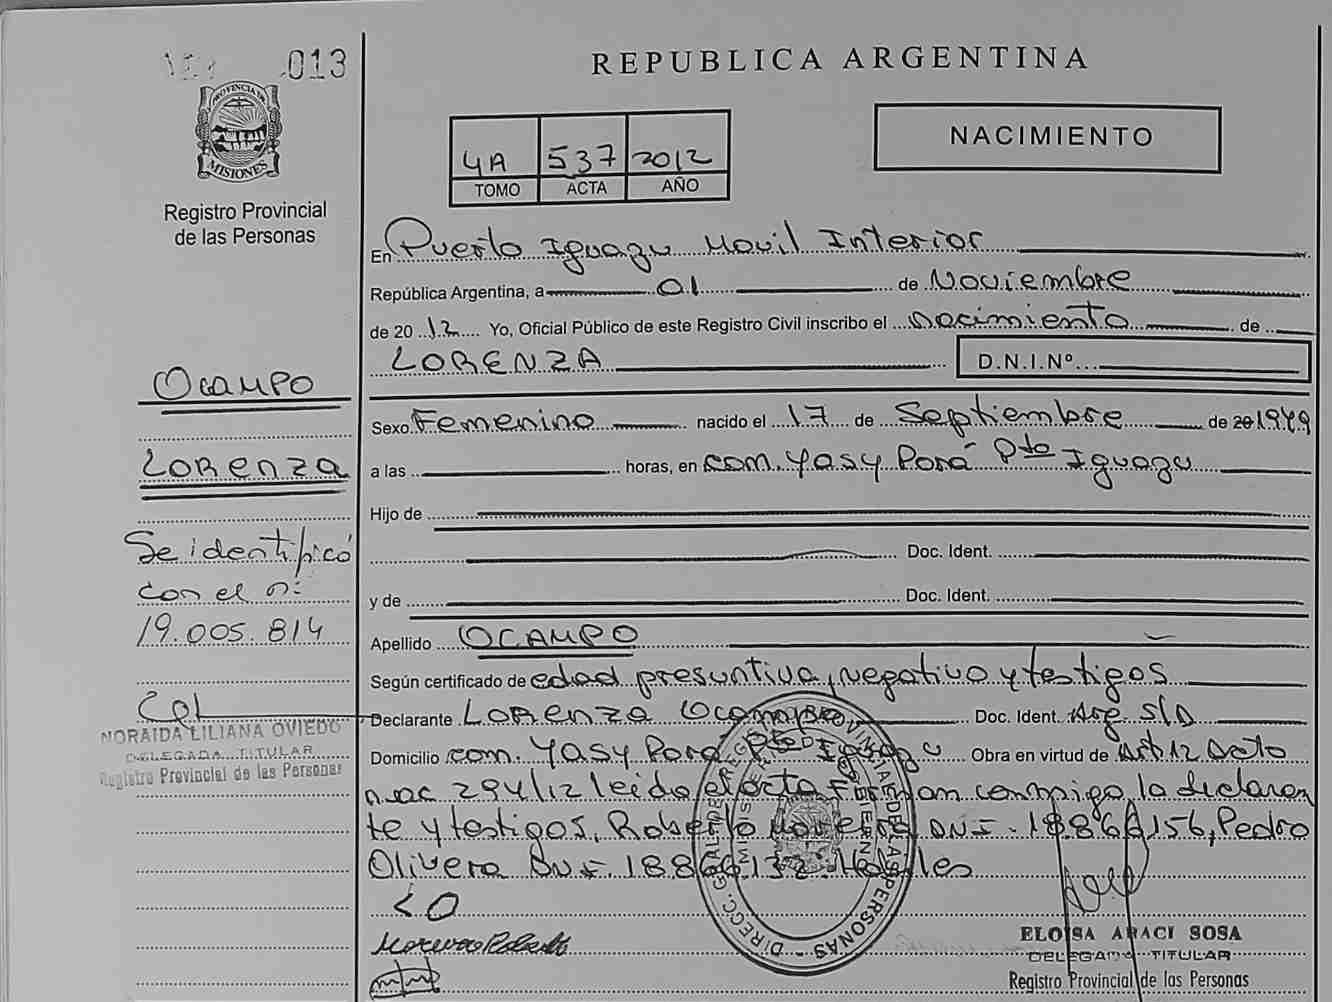 013
PROVINCIA DE
MISIONES
Registro Provincial
de las Personas
REPUBLICA ARGENTINA
4A 537 2012
TOMO ACTA AÑO
NACIMIENTO
En Puerto Iguazu Movil Interior
República Argentina, a 01 de Noviembre
de 20 12 Yo, Oficial Público de este Registro Civil inscribo el nacimiento de
LORENZA D.N.I.Nº
Sexo Femenino nacido el 17 de Septiembre de 20 1949
a las horas, en com. Yasy Porá Pto Iguazu
Hijo de
Doc. Ident.
y de Doc. Ident.
Apellido OCAMPO
Según certificado de edad presuntiva, negativo y testigos
Declarante Lorenza Ocampo Doc. Ident. Arg. S/D
Domicilio com. Yasy Porá Pto Iguazu Obra en virtud de Art 12 Dcto
nac 294/12 leido el acta Firman conmigo, la declaran
te y testigos, Roberto Moreira DNI. 18.866.156, Pedro
Olivera DNI. 18866.132.
LO
OCAMPO
LORENZA
Se identificó
con el n:
19.005.814
NORAIDA LILIANA OVIEDO
DELEGADA TITULAR
Registro Provincial de las Personas
DIRECC. GRAL. DE REGISTRO PROVINCIAL DE LAS PERSONAS
ELOISA ARACI SOSA
DELEGADA TITULAR
Registro Provincial de las Personas